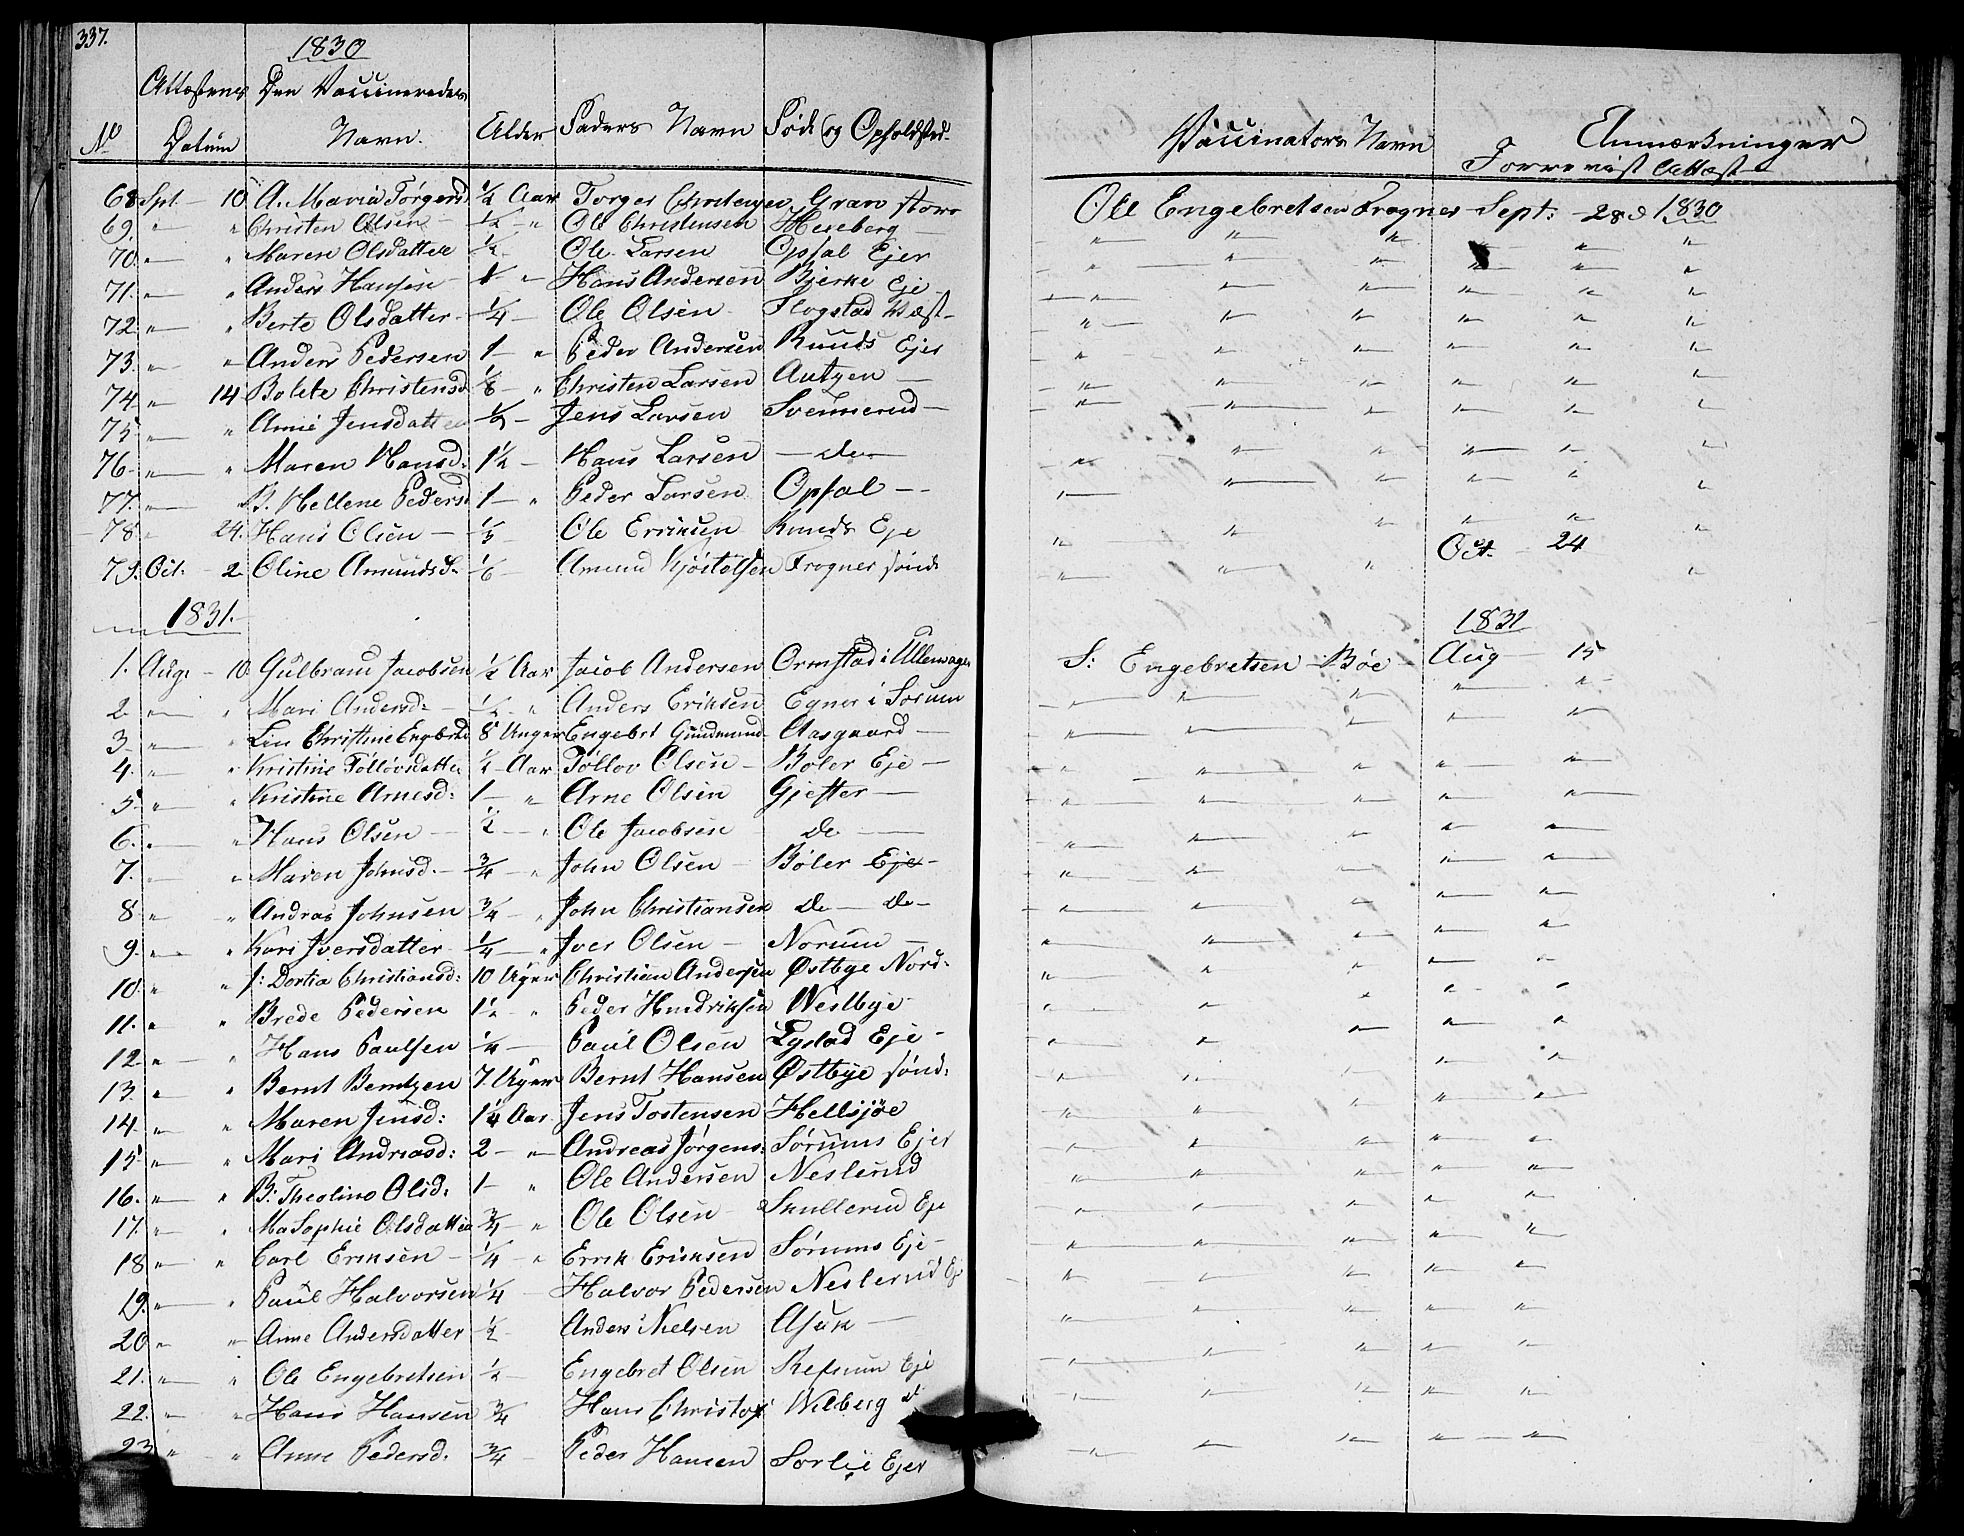 337.
1830
No Attestens Datum Den Vaccineredes Navn. Alder Faders Navn Føde og Opholdsted. Vaccinators Navn Anmærkninger
Forrevist Attest
68 Spt. — 10 A. Maria Torgersd ½ Aar Torger Christensen Gran store Ole Engebretsen Frogner Sept: 28 d 1830
69. " " Christen Olsen ½ " Ole Christensen Hexeberg — " " " " " "
70. " " Maren Olsdatter ½ Ole Larsen Opsal Ejer " " " " " "
71. " " Anders Hansen 1 " Hans Andersen Bjerke Eje " " " " " "
72. " " Berte Olsdatter ¼ — Ole Olsen Slogstad Væst " " " " " "
73. " " Anders Pedersen 1 — " Peder Andersen Ruuds Ejer " " " " " "
74. " 14 Bolete Christensd ⅛ — " Christen Larsen Autzen — " " " " " "
75. " " Anne Jensdatter ½ — Jens Larsen Svennerud — " " " " " "
76. " " Maren Hansd. 1½ — Hans Larsen — do — " " " " " "
77. " B. Hellene Pedersd 1 — " Peder Larsen Opsal — " " " " " "
78. " 24. Hans Olsen — ⅓ Ole Erriksen Ruuds Eje " " " " " "
79. Oct. — 2 Oline Amunds D. ⅙ — Amund Kjøstelsen Frogner sønd. " " " Oct. 24 "
1831. 1831
1. Aug. — 10 Gulbrand Jacobsen ½ Aar Jacob Andersen Ormstad i Ullensager S: Engebretsen Böe Aug 15
2. " " Mari Andersd: ½ " Anders Eriksen Egner i Sørum " " " " "
3. " " Lin Christine Engbrd 8 Unger Engebret Gundmund Aasgaard — " " " " "
4. " " Kristine Tølløvsdatter ½ Aar Tøllov Olsen — Bøler Eje — " " " " "
5. " " Kristine Arnesd: 1 — " Arne Olsen Gjefter — " " " " "
6. " " Hans Olsen — ½ — " Ole Jacobsen do — " " " " "
7. " " Maren Johnsd. — ¾ — " John Olsen — Bøler Eje — " " " " "
8 " " Andras Johnsen ¾ — " John Christiansen do — do — " " " " "
9. " " Kari Iversdatter ¼ — " Iver Olsen — Norum — " " " " "
10. " " J: Dortia Christiansd: 10 Uger Christian Andersen Østbye Nord. " " " " "
11. " " Brede Pedersen 1½ " Peder Hendriksen Westbye " " " " "
12. " " Hans Paulsen ¼ — Paul Olsen Lystad Eje — " " " " "
13. " " Bernt Berntzen 7. Uger Bernt Hansen Østbye sønd: " " " " "
14. " " Maren Jensd: 1¼ Aar Jens Tostensen Hellsjöe " " " " "
15 " " Mari Andreasd: 2 — " Andreas Jørgens: Sørums Ejer " " " " "
16. " " B: Theoline Olsd. 1 — " Ole Andersen Neslerud " " " " "
17. " " Ma Sophie Olsdatter ¾ — " Ole Olsen — Skullerud Eje " " " " "
18 " " Carl Eriksen — ¼ — " Errik Eriksen Sørums Eje — " " " " "
19. " " Paul Halvorsen ¼ — Halvor Pedersen Neslerud Ej " " " " "
20 " " Anne Andersdatter ½ — Anders Nielsen Asak — " " " " "
21. " " Ole Engebretsen ½ — Engebret Olsen Refsum Eje " " " " "
22. " " Hans Hansen ¾ Hans Christof Wilberg d " " " " "
23 " " Anne Pedersd. ¾ — Peder Hansen Sorlie Ejer " " " " "